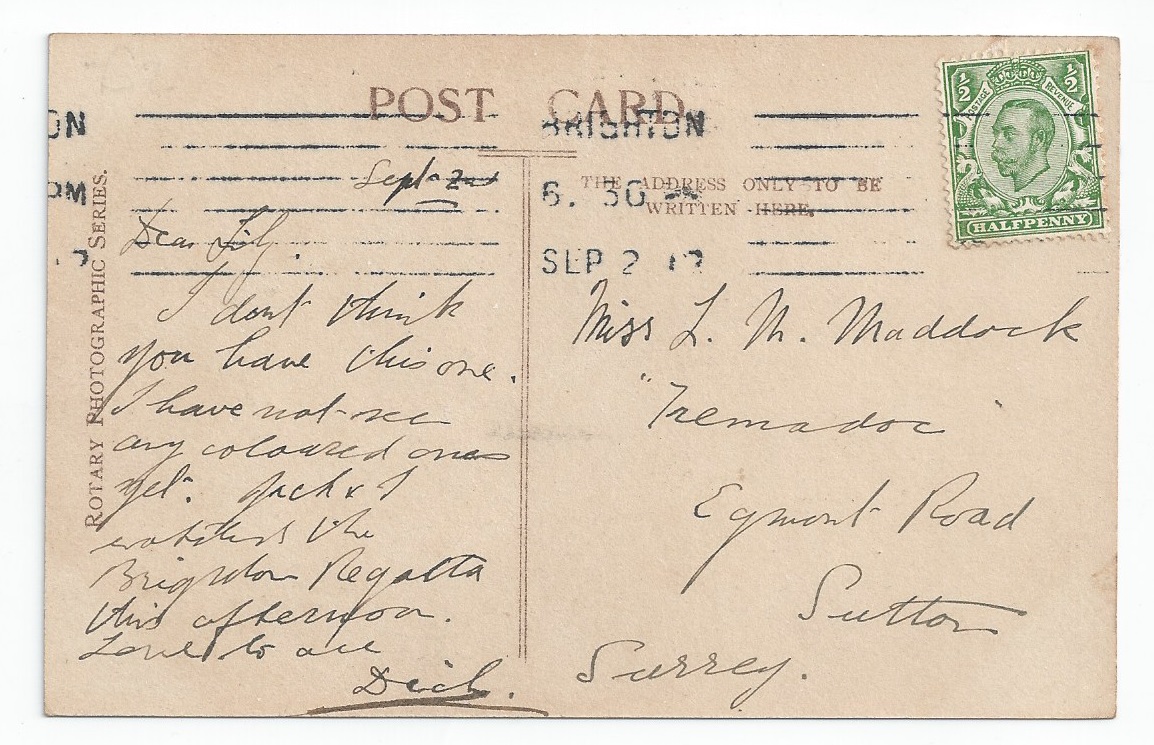 POST CARD
BRIGHTON
6. 30 PM
SEP 2 12
ON
PM
THE ADDRESS ONLY TO BE
WRITTEN HERE.
½ ½
POSTAGE REVENUE
HALFPENNY
ROTARY PHOTOGRAPHIC SERIES.
Sept 2nd
Dear Lily.
I dont think
you have this one.
I have not see
any coloured ones
yet. Jack & I
watched the
Brighton Regatta
this afternoon.
Love to all
Dick.
Miss L. M. Maddock
"Tremadoc
Egmont Road
Sutton
Surrey.